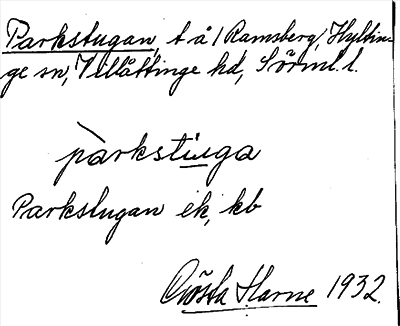 Parkstugan, t å 1 Ramsberg, Hyltin-
ge sn, Villåttinge hd, Sörml. l.
parkstuga
Parkstugan ek, kb
Gösta Harne 1932.